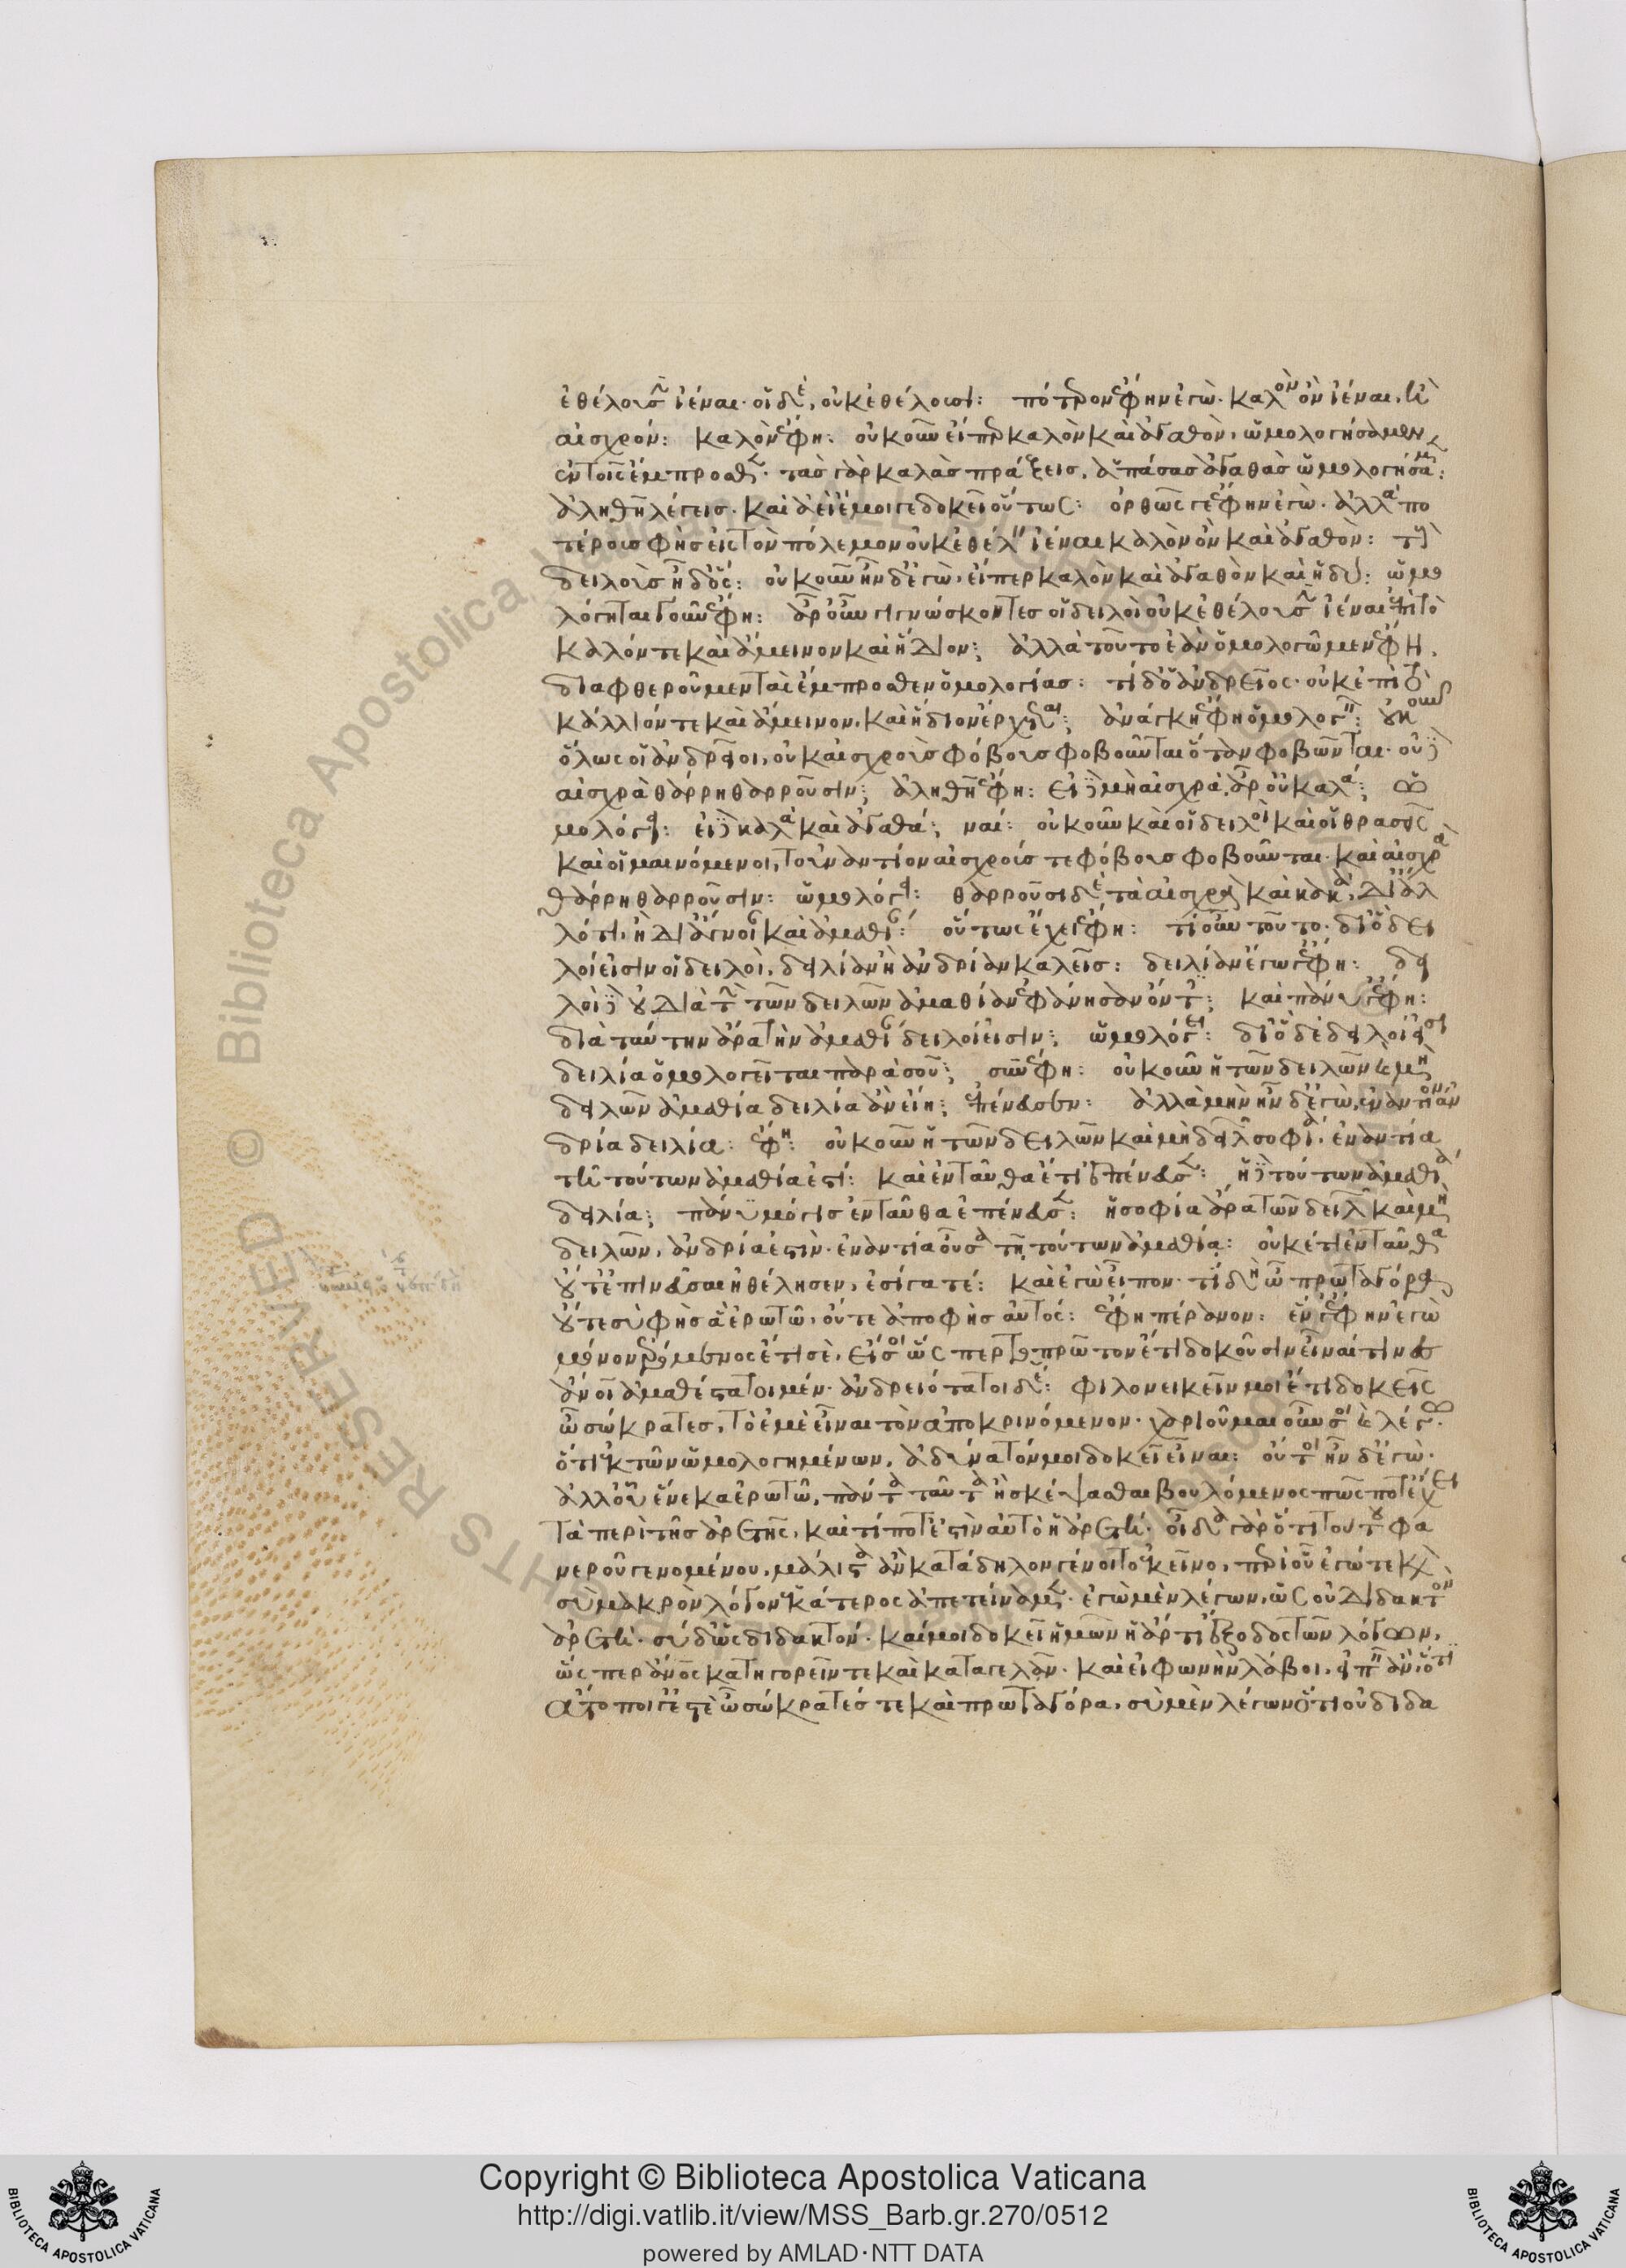 ἐθέλουσιν ἰέναι· οἱ δὲ, οὐκ ἐθέλουσι: πότερον ἔφην ἐγὼ· καλὸν ὂν ἰέναι, ἢ
αἰσχρόν: καλὸν ἔφη: οὐκοῦν εἴπερ καλὸν καὶ ἀγαθὸν, ὡμολογήσαμεν
ἐν τοῖς ἔμπροσθεν· τὰς γὰρ καλὰς πράξεις, ἁπάσας ἀγαθὰς ὡμολογήσαμεν:
ἀληθῆ λέγεις· καὶ ἀεὶ ἔμοιγε δοκεῖ οὕτως: ὀρθῶς γε ἔφην ἐγὼ· ἀλλὰ πο
τέρους φὴς εἰς τὸν πόλεμον οὐκ ἐθέλειν ἰέναι καλὸν ὂν καὶ ἀγαθὸν: τοὺς
δειλοὺς ἦ δ' ὅς: οὐκοῦν ἦν δ' ἐγὼ, εἴπερ καλὸν καὶ ἀγαθὸν καὶ ἡδύ: ὡμο
λόγηται γοῦν ἔφη: ἆρ' οὖν γιγνώσκοντες οἱ δειλοὶ οὐκ ἐθέλουσιν ἰέναι ἐπὶ τὸ
κάλλιόν τε καὶ ἄμεινον καὶ ἥδιον; ἀλλὰ τοῦτο ἐὰν ὁμολογῶμεν ἔφη,
διαφθεροῦμεν τὰς ἔμπροσθεν ὁμολογίας: τί δ' ὁ ἀνδρεῖος· οὐκ ἐπὶ τὸ
κάλλιόν τε καὶ ἄμεινον, καὶ ἥδιον ἔρχεται; ἀνάγκη ἔφη ὁμολογεῖν: οὐκοῦν
ὅλως οἱ ἀνδρεῖοι, οὐκ αἰσχροὺς φόβους φοβοῦνται ὅταν φοβῶνται· οὐδὲ
αἰσχρὰ θάρρη θαρροῦσιν; ἀληθῆ ἔφη: εἰ δὲ μὴ αἰσχρά, ἆρ' οὐ καλά; ὡ
μολόγει: εἰ δὲ καλὰ καὶ ἀγαθά; ναί: οὐκοῦν καὶ οἱ δειλοὶ καὶ οἱ θρασεῖς
καὶ οἱ μαινόμενοι, τοὐναντίον αἰσχρούς τε φόβους φοβοῦνται· καὶ αἰσχρὰ
θάρρη θαρροῦσιν: ὡμολόγει: θαρροῦσι δὲ τὰ αἰσχρὰ καὶ κακὰ, δι' ἄλ
λό τι, ἢ δι' ἄγνοιαν καὶ ἀμαθίαν: οὕτως ἔχει ἔφη: τί οὖν τοῦτο· δι' ὃ δει
λοί εἰσιν οἱ δειλοὶ, δειλίαν ἢ ἀνδρίαν καλεῖς: δειλίαν ἔγωγε ἔφη: δει
λοὶ δὲ οὐ διὰ τὴν τῶν δεινῶν ἀμαθίαν ἐφάνησαν ὄντες; καὶ πάνυ γε ἔφη:
διὰ ταύτην ἄρα τὴν ἀμαθίαν δειλοί εἰσιν; ὡμολόγει: δι' ὃ δὲ δειλοί εἰσι
δειλία ὁμολογεῖται παρὰ σοῦ; συνέφη: οὐκοῦν ἡ τῶν δεινῶν καὶ μὴ
δεινῶν ἀμαθία δειλία ἂν εἴη; ἐπένευσεν: ἀλλὰ μὴν ἦν δ' ἐγὼ, ἐναντίον ἀν
δρία δειλία: ἔφη: οὐκοῦν ἡ τῶν δεινῶν καὶ μὴ δεινῶν σοφία, ἐναντία
τῇ τούτων ἀμαθίᾳ ἐστί: καὶ ἐνταῦθα ἔτι ἐπένευσεν: ἡ δὲ τούτων ἀμαθία
δειλία; πάνυ μόγις ἐνταῦθα ἐπένευσεν: ἡ σοφία ἄρα τῶν δεινῶν καὶ μὴ
δεινῶν, ἀνδρία ἐστὶν· ἐναντία οὖσα τῇ τούτων ἀμαθίᾳ: οὐκέτι ἐνταῦθα
οὔτ' ἐπινεῦσαι ἠθέλησεν, ἐσίγα τέ: καὶ ἐγὼ εἶπον· τί δὴ ὦ πρωταγόρα
οὔτε σὺ φὴς ἃ ἐρωτῶ, οὔτε ἀπόφης αὐτός: ἔφη πέρανον: ἕν γ' ἔφην ἐγὼ
μόνον ἐρόμενος ἔτι σὲ, εἴ σοι ὥσπερ τὸ πρῶτον ἔτι δοκοῦσιν εἶναί τινες
ἄνοι ἀμαθέστατοι μέν· ἀνδρειότατοι δέ: φιλονεικεῖν μοι ἔτι δοκεῖς
ὦ σώκρατες, τὸ ἐμὲ εἶναι τὸν ἀποκρινόμενον· χαριοῦμαι οὖν σοι καὶ λέγω·
ὅτι ἐκ τῶν ὡμολογημένων, ἀδύνατόν μοι δοκεῖ εἶναι: οὔτοι ἦν δ' ἐγὼ·
ἀλλου ἕνεκα ἐρωτῶ, πάντα ταῦτα ἢ σκέψασθαι βουλόμενος πῶς ποτ' ἔχει
τὰ περὶ τῆς ἀρετῆς, καὶ τί ποτ' ἐστὶν αὐτὸ ἡ ἀρετή· οἶδα γὰρ ὅτι τούτου φα
νεροῦ γενομένου, μάλιστ' ἂν κατάδηλον γένοιτο ἐκεῖνο, περὶ οὗ ἐγώ τε καὶ
σὺ μακρὸν λόγον ἑκάτερος ἀπετείναμεν· ἐγὼ μὲν λέγων, ὡς οὐ διδακτὸν
ἀρετὴ· σὺ δ' ὡς διδακτόν· καί μοι δοκεῖ ἡμῶν ἡ ἄρτι ἔξοδος τῶν λόγων,
ὥσπερ ἄνος κατηγορεῖν τε καὶ καταγελᾶν· καὶ εἰ φωνὴν λάβοι, εἰπεῖν ἂν, ὅτι
ἄτοποί γ' ἐστὲ ὦ σώκρατές τε καὶ πρωταγόρα, σὺ μὲν λέγων ὅτι οὐ διδα
Copyright © Biblioteca Apostolica Vaticana
http://digi.vatlib.it/view/MSS_Barb.gr.270/0512
powered by AMLAD·NTT DATA